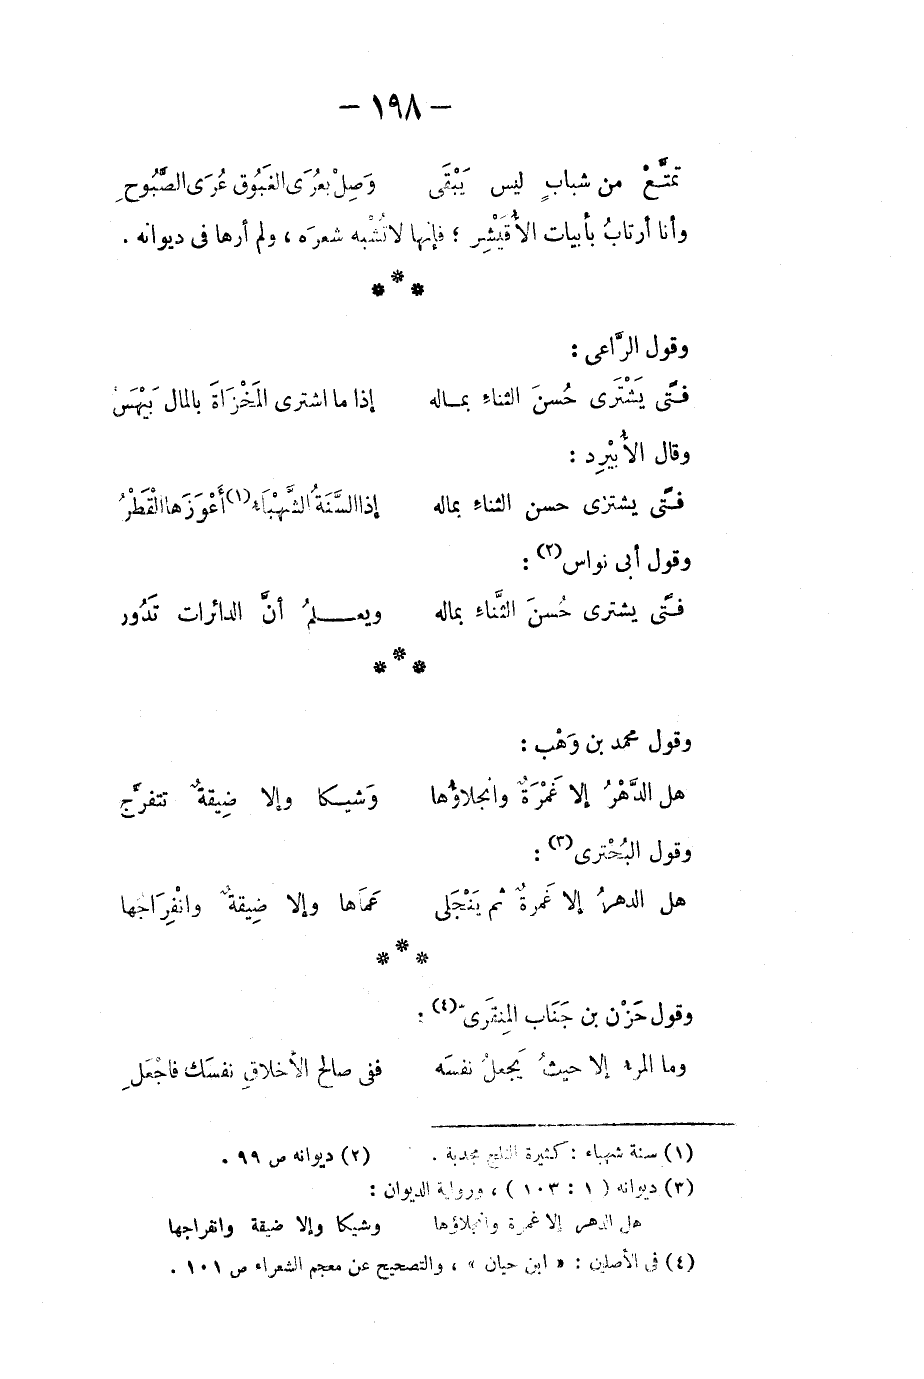 — ١٩٨ —
تمتَّعْ من شبابٍ ليس يَبْقَى وَصِلْ بعُرَى الغَبُوق عُرَى الصَّبُوحِ
وأنا أرتابُ بأبيات الأُقَيْشِر ؛ فإنها لا تُشْبه شعرَه ، ولم أرها فى ديوانه .
* * *
وقول الرَّاعى :
فتًى يَشْتَرِى حُسنَ الثناءِ بمـاله إذا ما اشترى المَخْزَاةَ بالمال بَيْهَسُ
وقال الأُبَيْرِد :
فتًى يشترى حسن الثناءِ بماله إذا السَّنَةُ الشَّهْبَاء(١) أَعْوَزَها القَطْرُ
وقول أبى نواس(٢) :
فتًى يشترى حُسنَ الثَّناءِ بماله ويعـــلمُ أنَّ الدائرات تَدُور
* * *
وقول محمد بن وَهْب :
هل الدَّهْرُ إلا غَمْرَةٌ وانجلاؤُها وَشيـكا وإلا ضِيقةٌ تتفرَّج
وقول البُحْترى(٣) :
هل الدهرُ إلا غَمرةٌ ثم يَنْجَلى عَمَاها وإلا ضِيقةٌ وانْفِرَاجُها
* * *
وقول حَزْن بن جَنَاب المِنقَرىّ(٤) :
وما المرء إلا حيثُ يَجعلُ نفسَه ففى صالح الأخلاقِ نفسَك فاجْعَلِ
(١) سنة شهباء : كثيرة الثلج مجدبة . (٢) ديوانه ص ٩٩ .
(٣) ديوانه ( ١ : ١٠٣ ) ، ورواية الديوان :
هل الدهر إلا غمرة وانجلاؤها وشيكا وإلا ضيقة وانفراجها
(٤) فى الأصلين : « ابن حيان » ، والتصحيح عن معجم الشعراء ص ١٠١ .